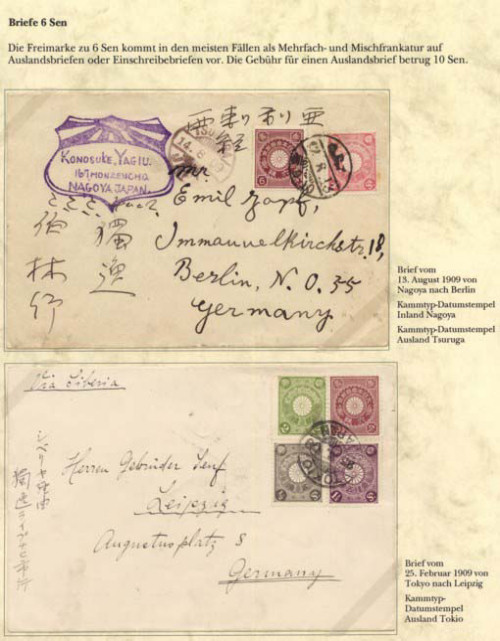 Briefe 6 Sen
Die Freimarke zu 6 Sen kommt in den meisten Fällen als Mehrfach- und Mischfrankatur auf
Auslandsbriefen oder Einschreibebriefen vor. Die Gebühr für einen Auslandsbrief betrug 10 Sen.
KONOSUKE, YAGIU.
NAGOYA JAPAN.
西利亜
経
Mr.
Emil
Immanuelkirchstr. 18,
Berlin, N.O. 35
Germany
伯林
獨逸
Brief vom
13. August 1909 von
Nagoya nach Berlin
Kammtyp-Datumstempel
Inland Nagoya
Kammtyp-Datumstempel
Ausland Tsuruga
Via Siberia
Herren Gebrüder Senf
Leipzig
Augustusplatz 8
Germany
TOKIO
JAPAN
Brief vom
25. Februar 1909 von
Tokyo nach Leipzig
Kammtyp-
Datumstempel
Ausland Tokio